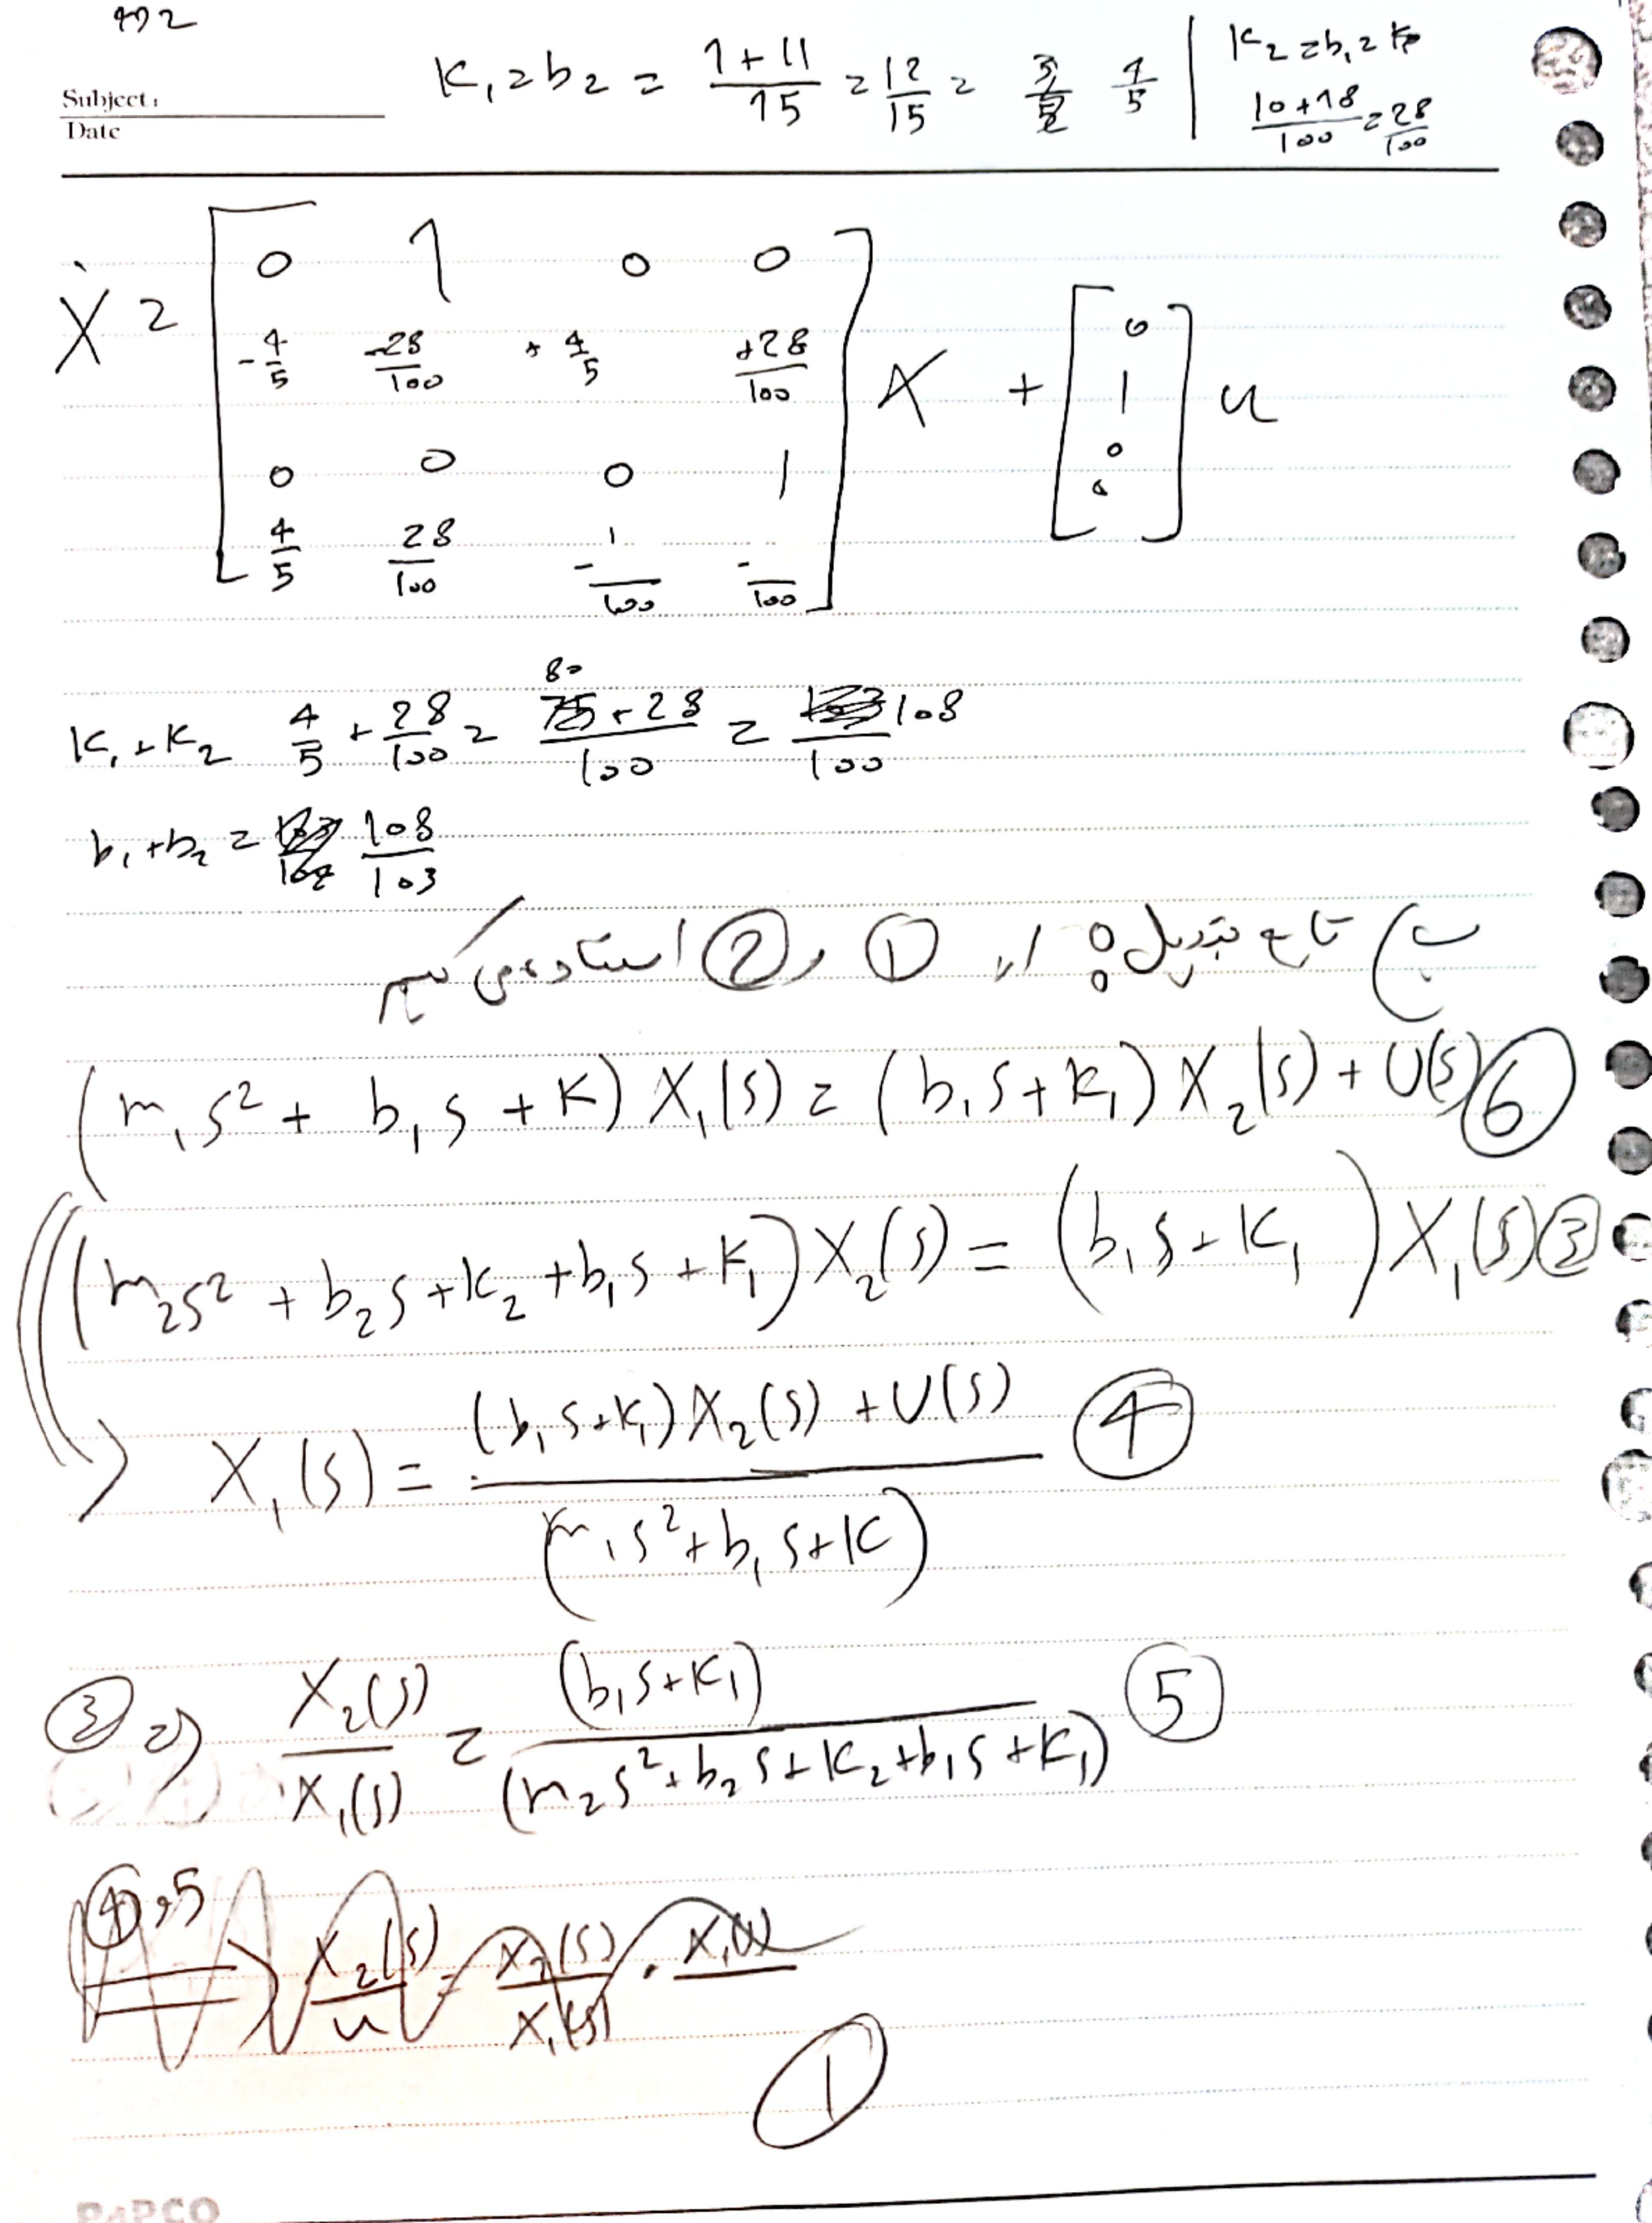 Subject:
Date
K₁ = b₂ = (1+11)/15 = 12/15 = 4/5 | K₂ = b₁ =
(10+18)/100 = 28/100
Ẋ = [ 0 1 0 0
-4/5 -28/100 +4/5 +28/100
0 0 0 1
4/5 28/100 -1/100 -/100 ] X + [ 0 1 0 0 ] u
K₁+K₂ 4/5 + 28/100 = (80+28)/100 = 108/100
b₁+b₂ = 108/103
ب) تابع تبدیل: از ① و ② استفاده می کنیم
(m₁s² + b₁s + K) X₁(s) = (b₁s + K₁) X₂(s) + U(s) ⑥
(m₂s² + b₂s + K₂ + b₁s + K₁) X₂(s) = (b₁s + K₁) X₁(s) ③
⇒ X₁(s) = ((b₁s+K₁) X₂(s) + U(s)) / (m₁s² + b₁s + K) ④
③ ⇒ X₂(s)/X₁(s) = (b₁s+K₁) / (m₂s² + b₂s + K₂ + b₁s + K₁) ⑤
④,5 ⇒ X₂(s)/u = X₂(s)/X₁(s) · X₁(s)
①
PAPCO